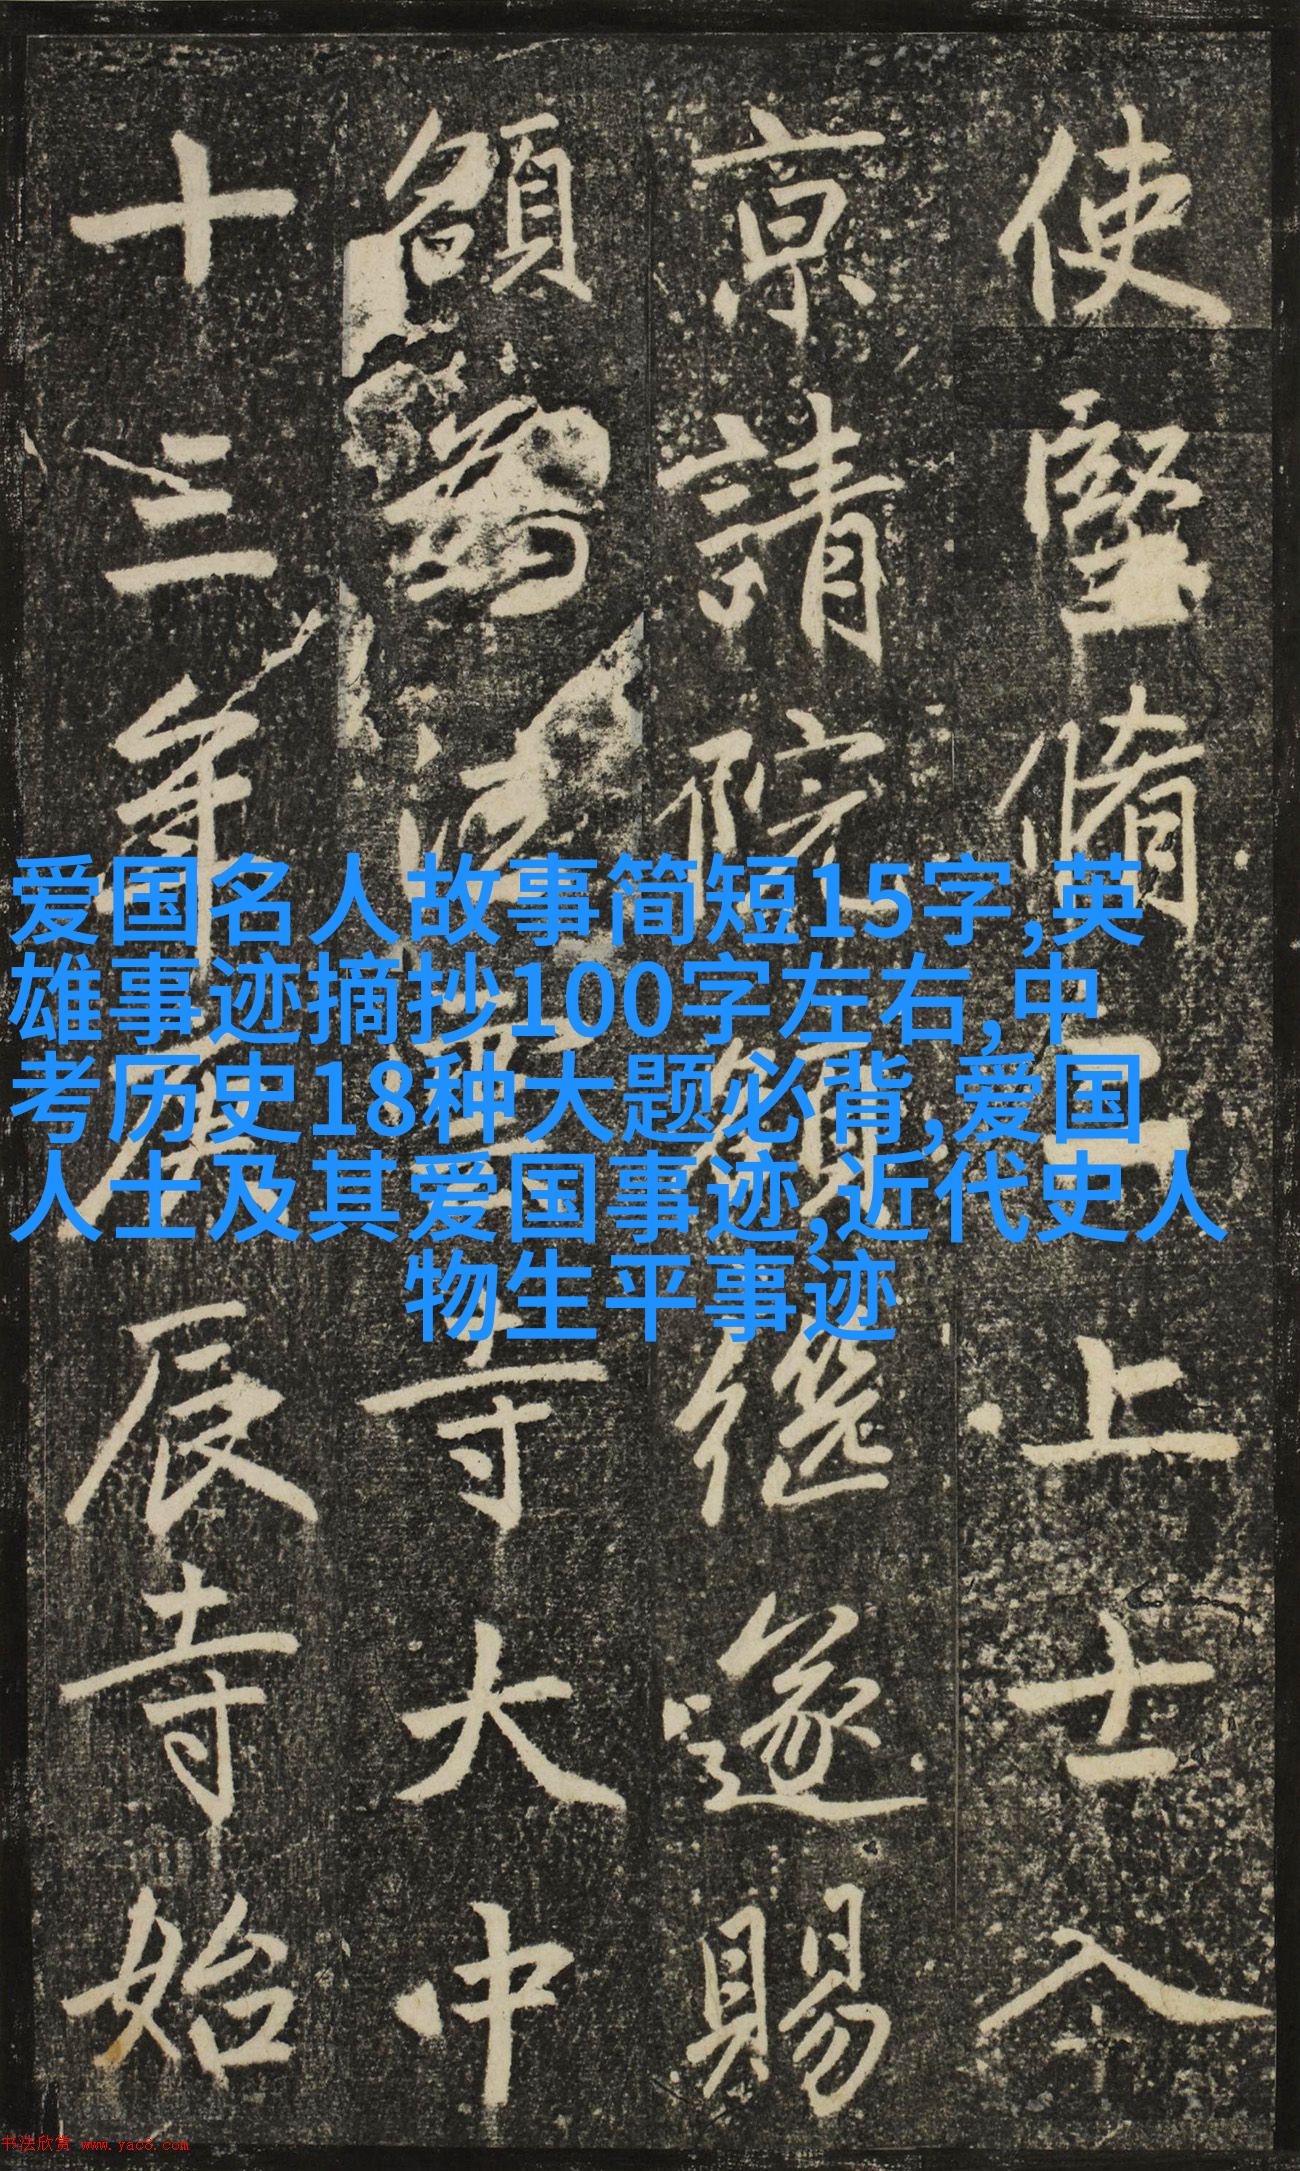 使堅脩上士入
京請院額繼遂賜
額為法雲寺大中
十三年庚辰寺始
爱国名人故事简短15字,英
雄事迹摘抄100字左右,中
考历史18种大题必背,爱国
人士及其爱国事迹,近代史人
物生平事迹
书法欣赏 www.yac8.com